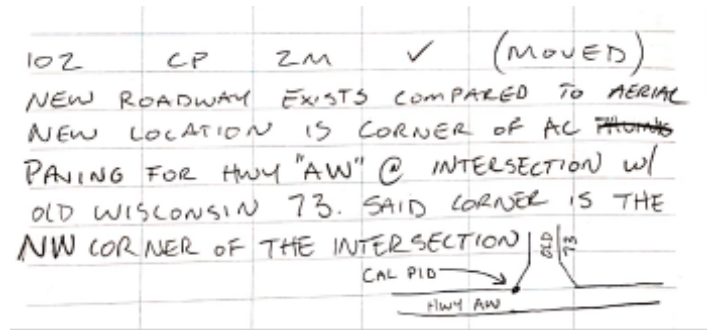 102 CP 2M ✓ (MOVED)
NEW ROADWAY EXISTS COMPARED TO AERIAL
NEW LOCATION IS CORNER OF AC
PAVING FOR HWY "AW" @ INTERSECTION W/
OLD WISCONSIN 73. SAID CORNER IS THE
NW CORNER OF THE INTERSECTION
OLD
73
CAL PID
HWY AW